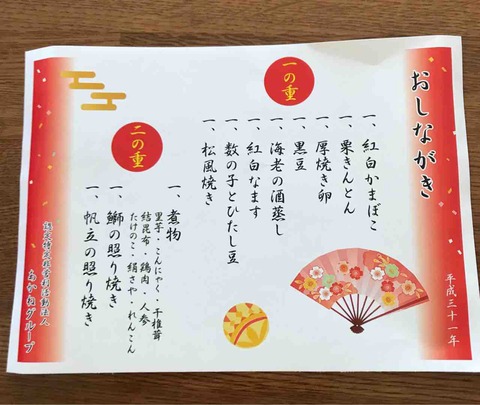 おしながき
平成三十一年
一の重
一、紅白かまぼこ
一、栗きんとん
一、厚焼き卵
一、黒豆
一、海老の酒蒸し
一、紅白なます
一、数の子とひたし豆
一、松風焼き
二の重
一、煮物
里芋・こんにゃく・干椎茸
結昆布・鶏肉・人参
たけのこ・絹さや・れんこん
一、鰤の照り焼き
一、帆立の照り焼き
認定特定非営利活動法人
あかねグループ